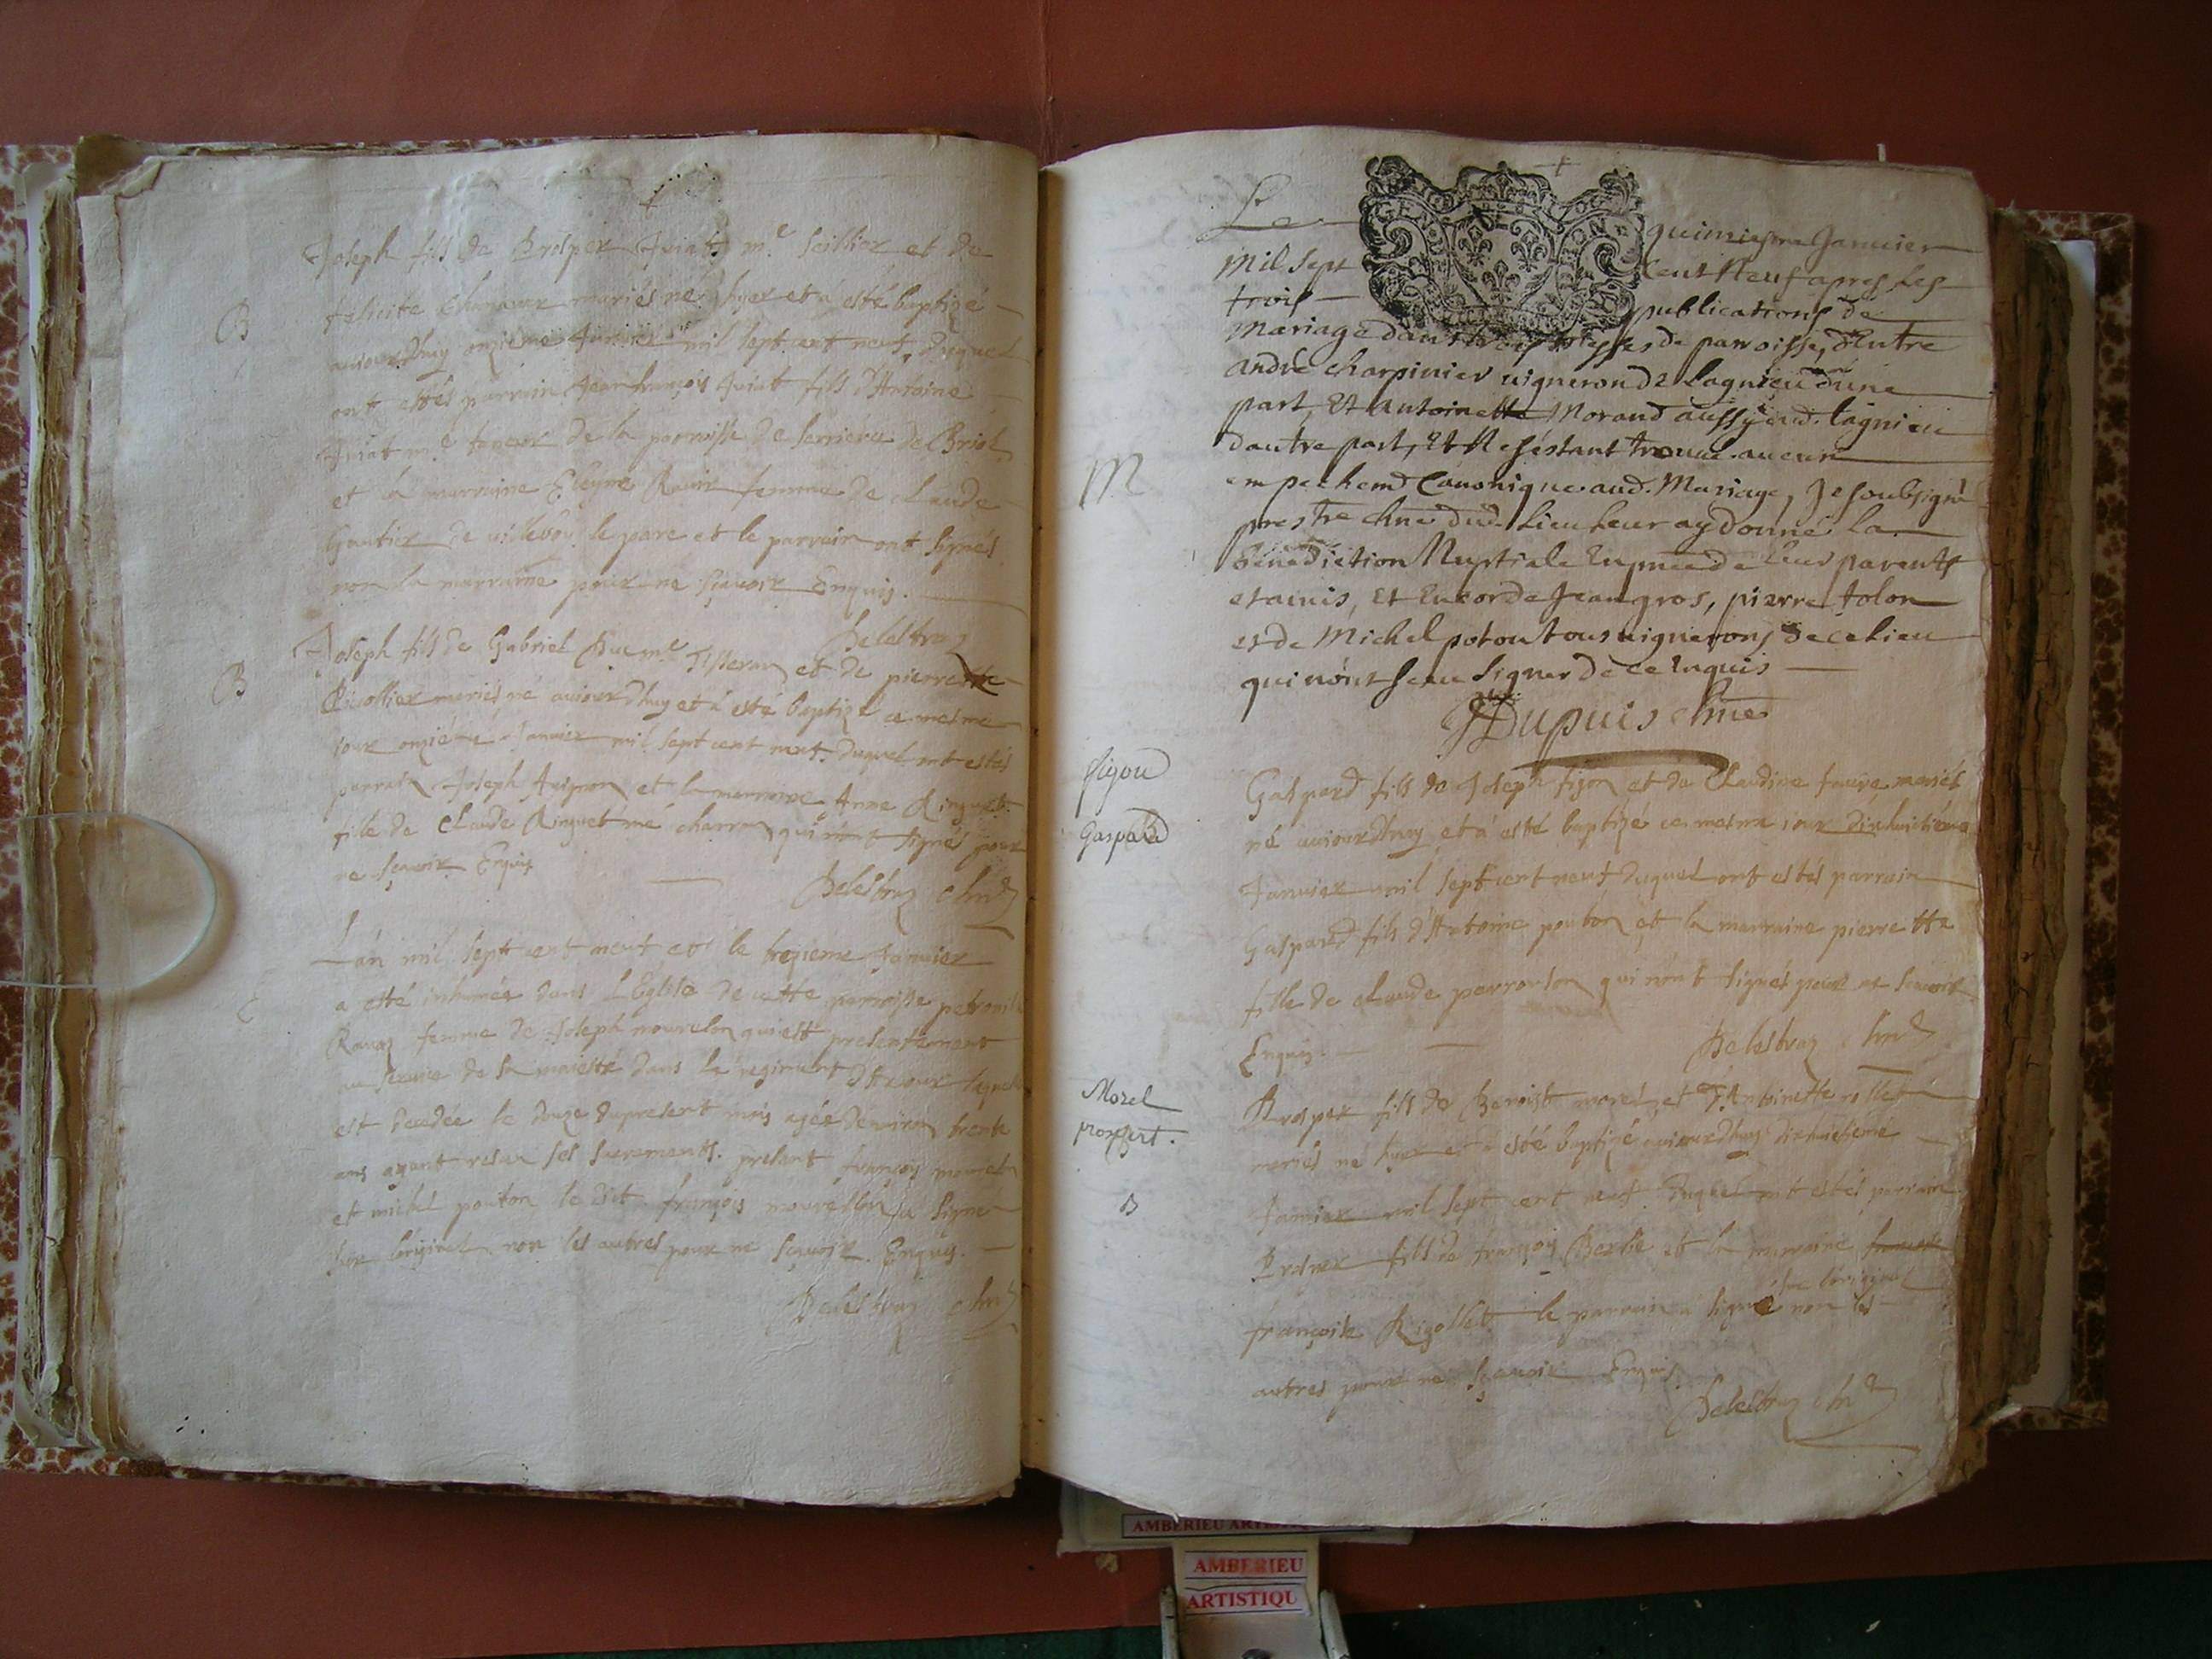 Joseph fils de Prosper Juiat m.e seillier et de
felicite mariés né hyer et a esté baptizé
B
aujourdhuy onzieme Janvier mil sept cent neuf, duquel
ont estés parrain Jean françois Juiat fils d'Antoine
Juiat m.e de la parroisse de serriere de Briol
et la marraine Ravix femme de claude
Gautier de villeboy le pere et le parrain ont signés
non la marraine pour ne sçavoir Enquis.
Delestraz
Joseph fils de Gabriel Duc m.e Tisseran et de pierrette
B
mariés né aujourdhuy et a esté baptizé ce mesme
jour onziéme Janvier mil sept cent neuf duquel ont estés
parrain Joseph Avignon et la marraine Anne Ringuet
fille de Claude Ringuet me charron qui n'ont signés pour
ne sçavoir Enquis
Delestraz
L'an mil sept cent neuf et le trezieme Janvier
a esté inhumée dans L'Eglise de cette parroisse
Ravaz femme de Joseph qui est presentement
au service de sa majesté dans le regiment laquelle
est decedée le douze du present mois agée denviron trente
ans ayant reseu ses sacrements. present françois
et michel pouton le dit françois a signé
sur loriginel non les autres pour ne sçavoir Enquis.
Delestraz
GENE
Le quinziesme Januier
mil sept Cent Neuf apres Les
trois publications de
mariage dans trois messes de parroisse, d'Entre
andré charpinier uigneron de Lagnieu dune
part, Et Antoinette Morand aussy dud. lagnieu
dautre part, Et Ne s'estant trouué aucun
M
empechemt Canonique aud. Mariage, Je soubsigné
prestre chne dud. Lieu Leur ay donné La
benediction Nuptiale En pnce de leur parents
et amis, Et Encor de Jean gros, pierre tolon
et de Michel potou tous uignerons de ce Lieu
qui n'ont sceu signer de ce Enquis
JDupuis chne
figou
Gaspard
Gaspard fils de Joseph figon et de Claudine faure mariés
né aujourdhuy et a esté baptizé ce mesme jour dixhuitiéme
Janvier mil sept cent neuf duquel ont estés parrain
Gaspard fils d'Antoine pouton et la marraine pierrette
fille de claude qui n'ont signés pour ne sçavoir
Enquis.
Delestraz
Morel
prospert.
Prosper fils de Benoist morel et d'Antoinette
mariés né hyer et a esté baptizé aujourdhuy dixhuictieme
B
Janvier mil sept cent neuf duquel ont estés parrain
Prosper fils de françois et la marraine
françoise Rigollet le parrain a signé sur loriginel non les
autres pour ne sçavoir Enquis
Delestraz
AMBERIEU
AMBERIEU
ARTISTIQU